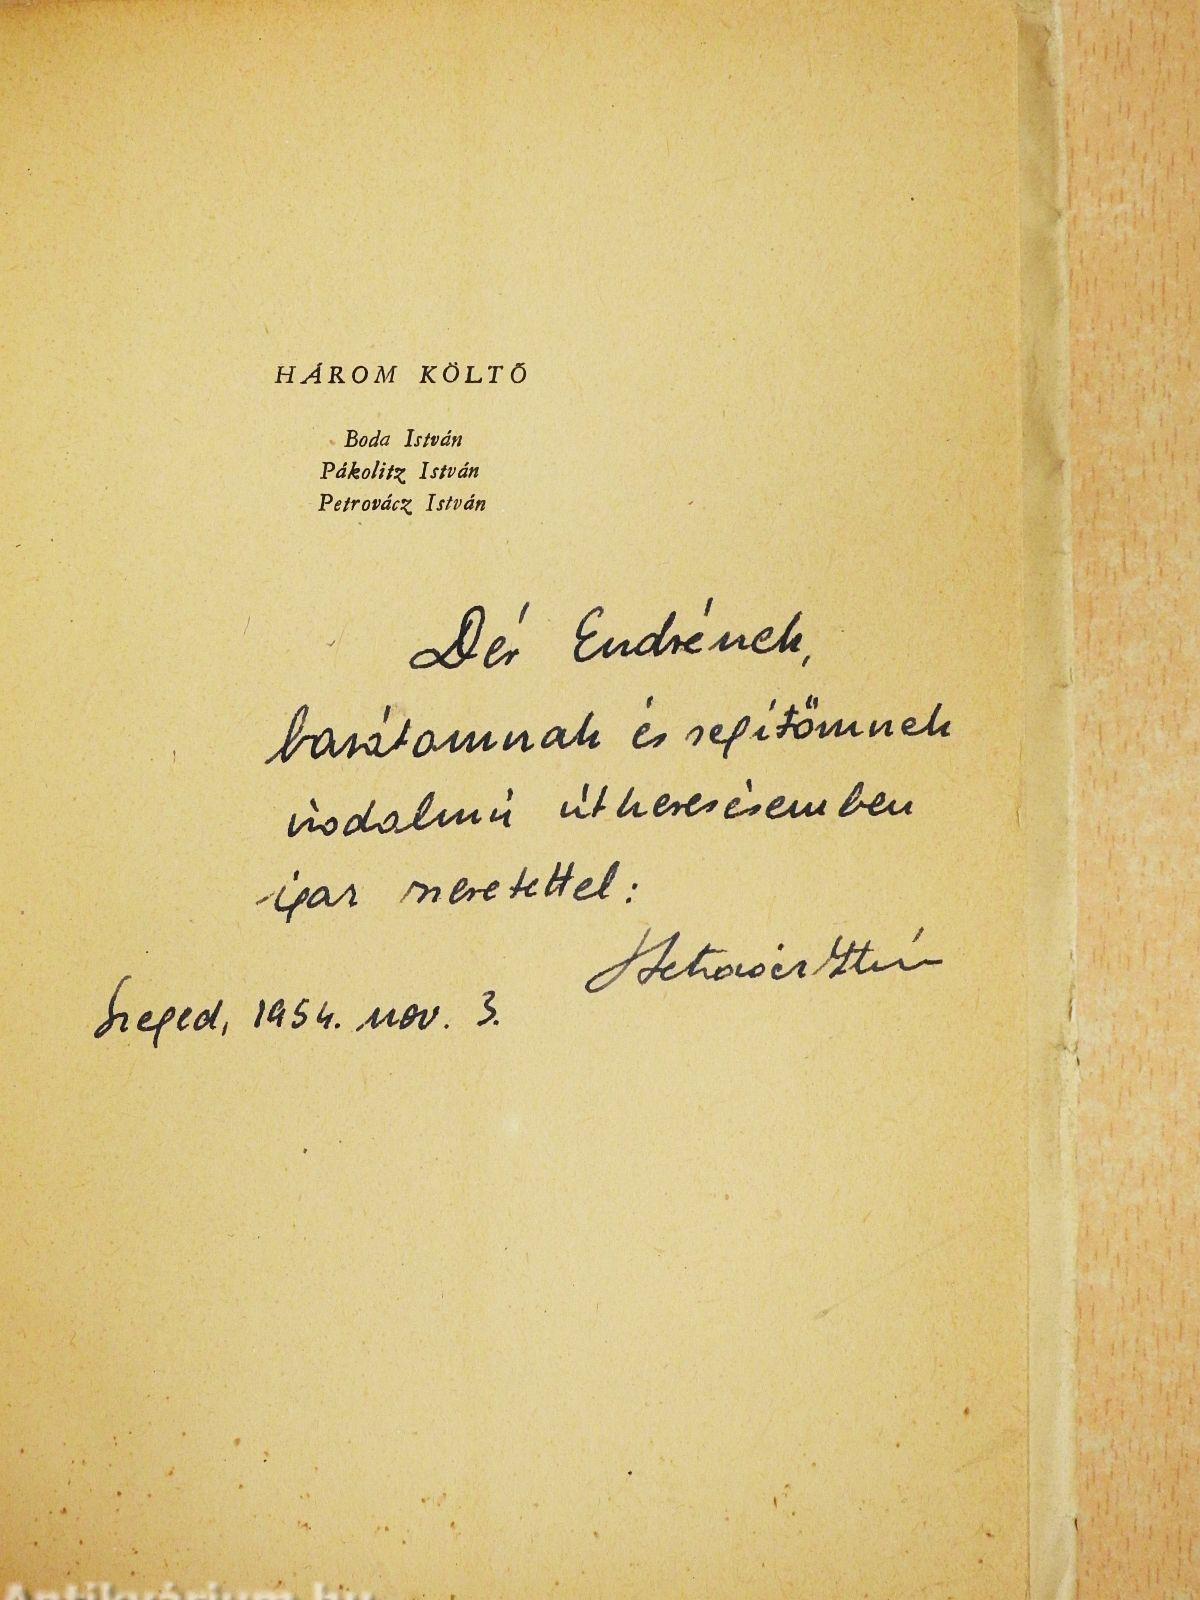 HÁROM KÖLTŐ
Boda István
Pákolitz István
Petrovácz István
Dér Endrének,
barátomnak és segítőmnek
irodalmi útkeresésemben
igaz szeretettel:
Petrovácz István
Szeged, 1954. nov. 3.
Antikvárium.hu